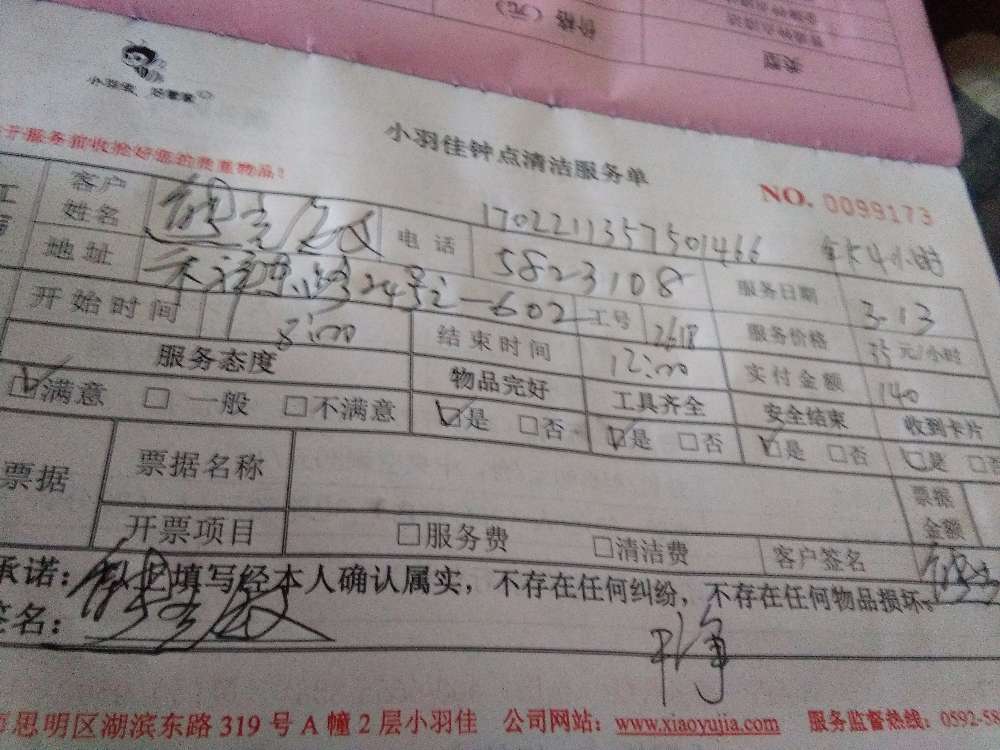 类型
价格（元）
小羽佳钟点清洁服务单
NO. 0099173
客户姓名
1702211357501466
4小时
电话
5823108
服务日期
3.13
地址
24号之一602
工号
2618
服务价格
35元/小时
开始时间
8:00
结束时间
12:00
实付金额
140
服务态度
物品完好
工具齐全
安全结束
收到卡片
满意 □ 一般 □不满意
是 □否
是 □否
是 □否
是
票据
票据名称
票据金额
开票项目
□服务费
□清洁费
客户签名
承诺：以上填写经本人确认属实，不存在任何纠纷，不存在任何物品损坏。
签名：
干净
思明区湖滨东路 319 号 A 幢 2 层小羽佳 公司网站：www.xiaoyujia.com 服务监督热线：0592-58